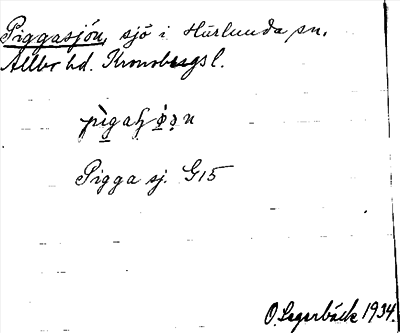 Piggasjön, sjö i Härlunda sn.
Allbo hd. Kronobergs l.
Pigga sj. G15
O. Segerbäck 1934.